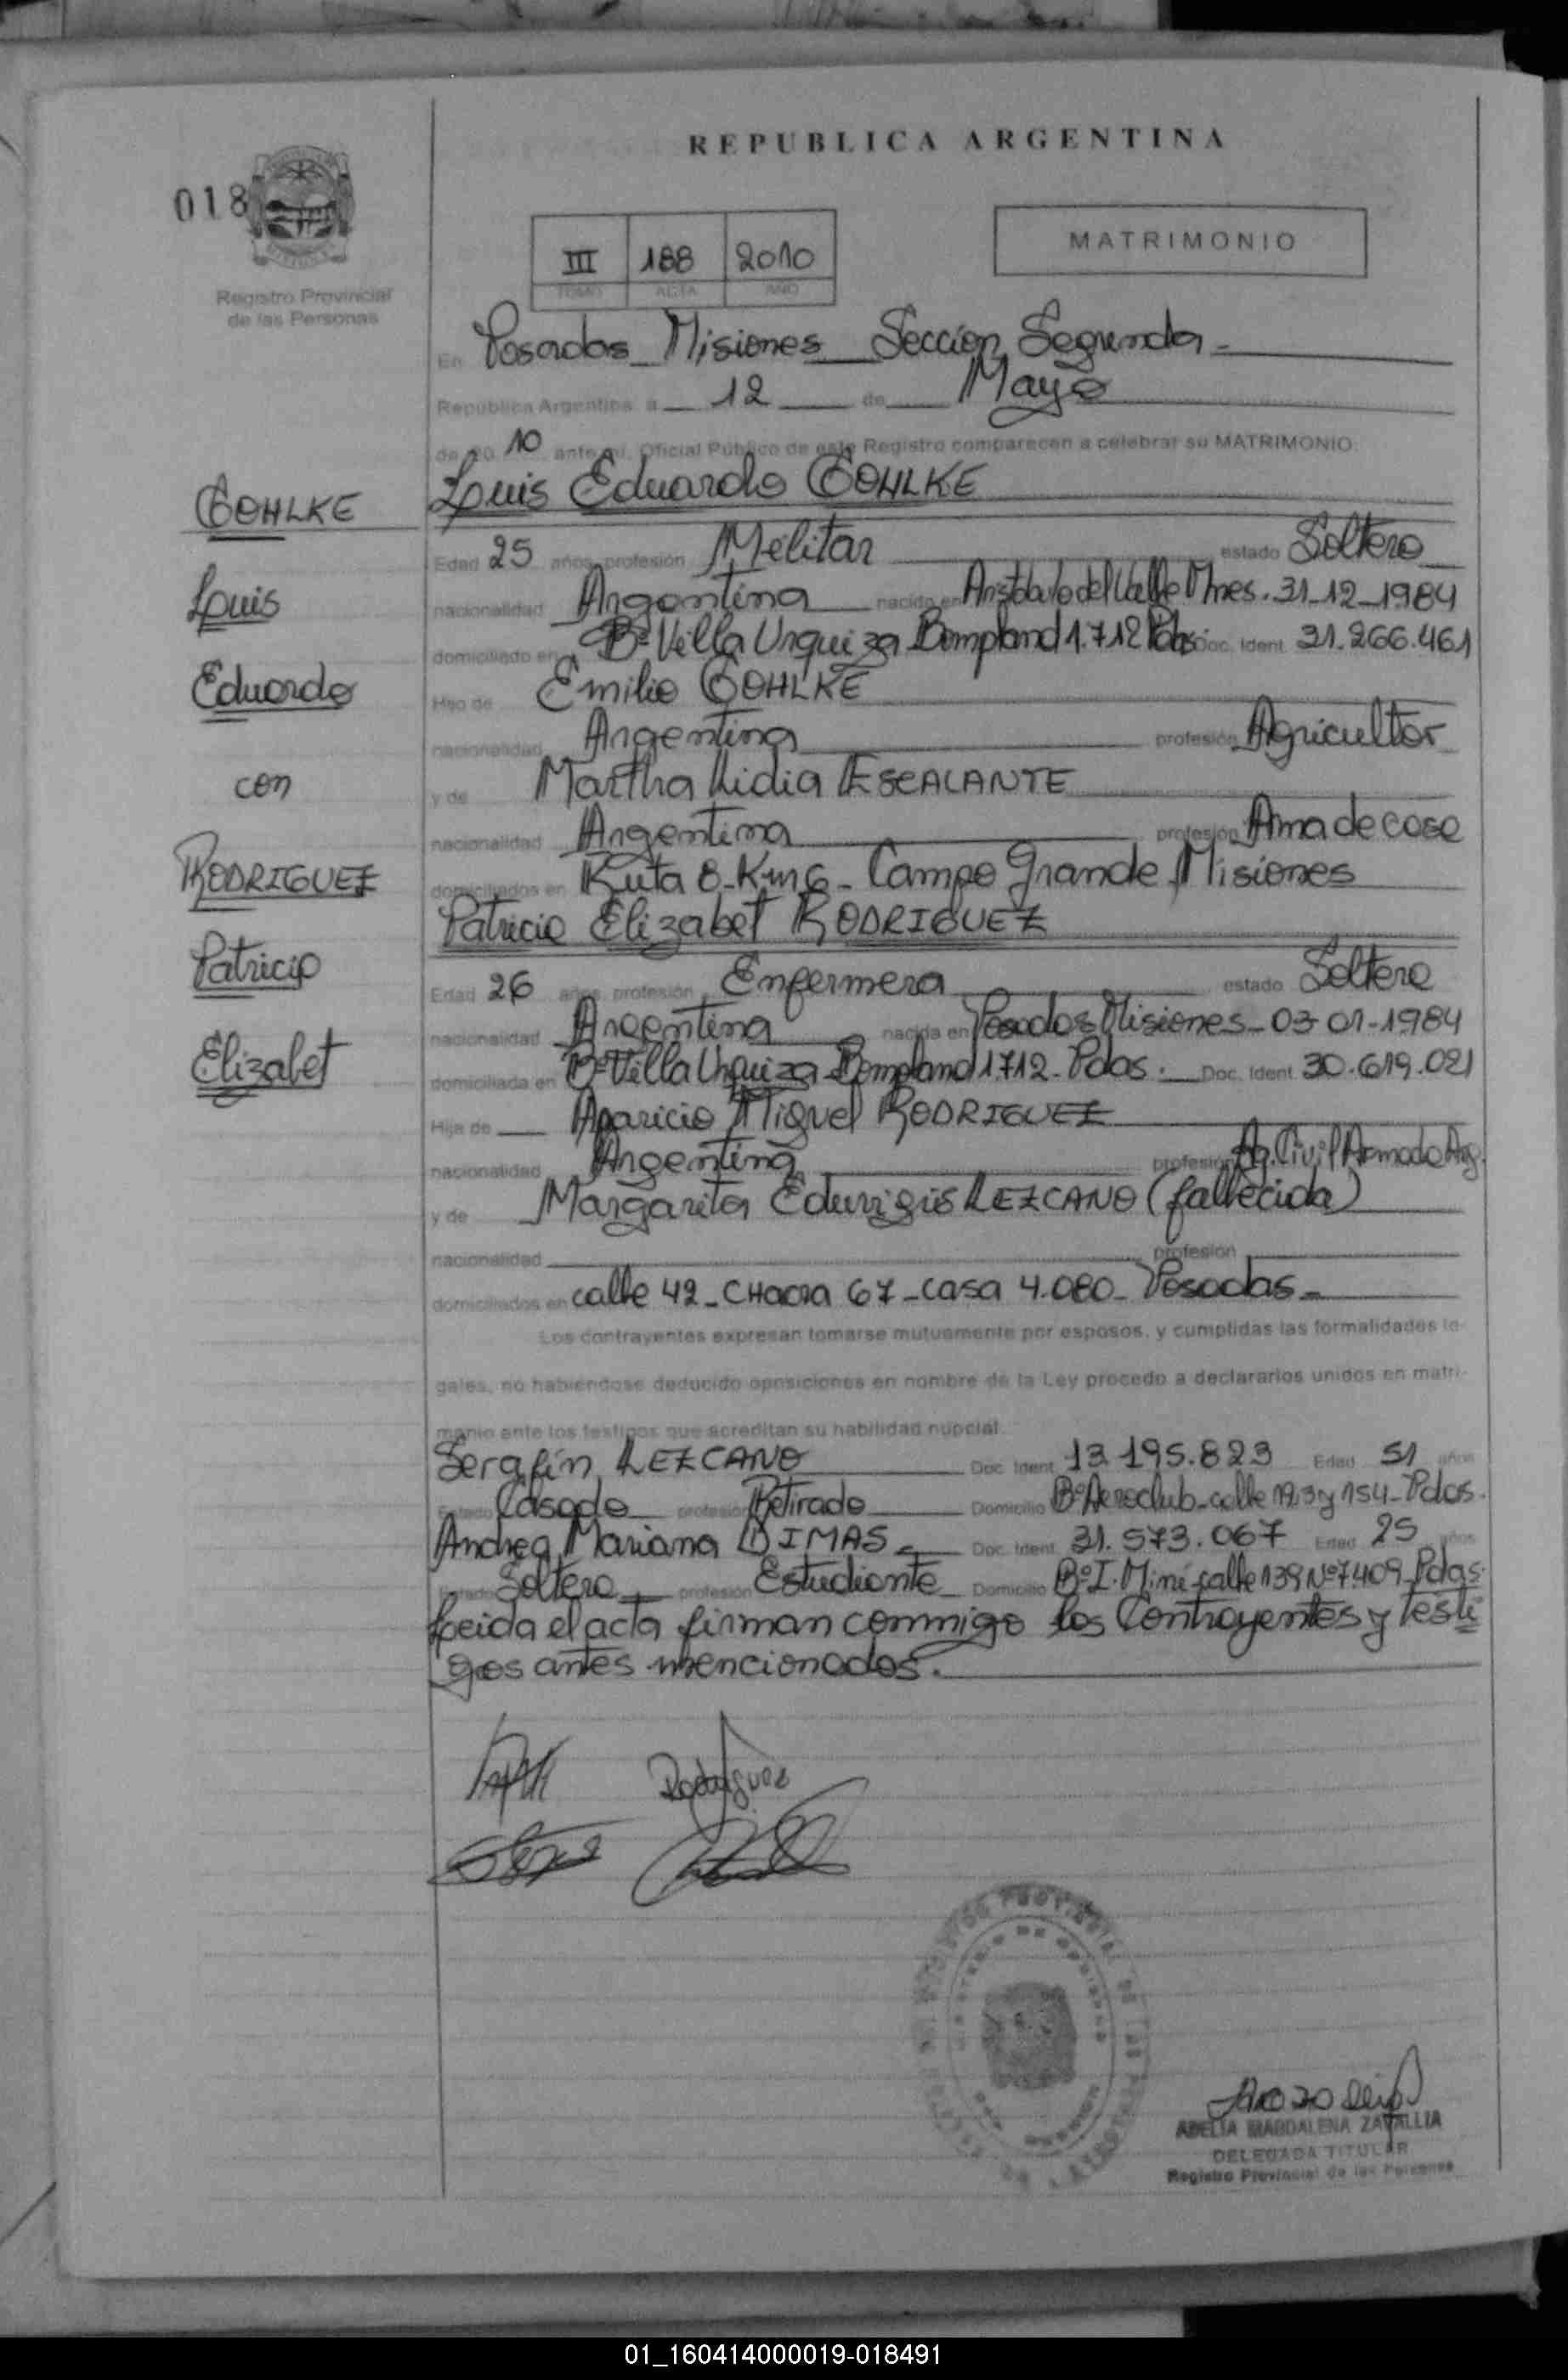 REPUBLICA ARGENTINA
018
III 188 2010
TOMO ACTA AÑO
MATRIMONIO
Registro Provincial
de las Personas
En Posadas Misiones Sección Segunda-
República Argentina a 12 de Mayo
de 20 10 ante mí, Oficial Público de este Registro comparecen a celebrar su MATRIMONIO:
GOHLKE
Luis
Eduardo
con
RODRIGUEZ
Patricia
Elizabet
Luis Eduardo GOHLKE
Edad 25 años, profesión Militar estado Soltero
nacionalidad Argentina nacido en Aristóbulo del Valle Mnes. 31-12-1984
domiciliado en Bº Villa Urquiza Bompland 1.712 Pdas. Doc. Ident. 31.266.461
Hijo de Emilio GOHLKE
nacionalidad Argentina profesión Agricultor
y de Martha Lidia ESCALANTE
nacionalidad Argentina profesión Ama de casa
domiciliados en Ruta 8-Km 6- Campo Grande Misiones
Patricia Elizabet RODRIGUEZ
Edad 26 años, profesión Enfermera estado Soltera
nacionalidad Argentina nacida en Posadas Misiones-03-01-1984
domiciliada en Bº Villa Urquiza Bompland 1712-Pdas. Doc. Ident. 30.619.021
Hija de Aparicio Miguel RODRIGUEZ
nacionalidad Argentina profesión Ag. Civil Armada Arg.
y de Margarita Eduvigis LEZCANO (fallecida)
nacionalidad profesión
domiciliados en calle 42-CHacra 67-casa 4.080- Posadas-
Los contrayentes expresan tomarse mutuamente por esposos, y cumplidas las formalidades le-
gales, no habiéndose deducido oposiciones en nombre de la Ley procedo a declararlos unidos en matri-
monio ante los testigos que acreditan su habilidad nupcial.
Serafín LEZCANO Doc. Ident. 13.195.823 Edad 51 años
Estado Casado profesión Retirado Domicilio Bº Aeroclub-calle 123 y 154-Pdas.
Andrea Mariana DIMAS- Doc. Ident. 31.573.067 Edad 25 años
Estado Soltera profesión Estudiante Domicilio Bº I. Miní calle 139 Nº 7409-Pdas.
Leida el acta firman conmigo los Contrayentes y testi
gos antes mencionados.
Rodriguez
ADELIA MAGDALENA ZAVALLIA
DELEGADA TITULAR
Registro Provincial de las Personas
01_160414000019-018491